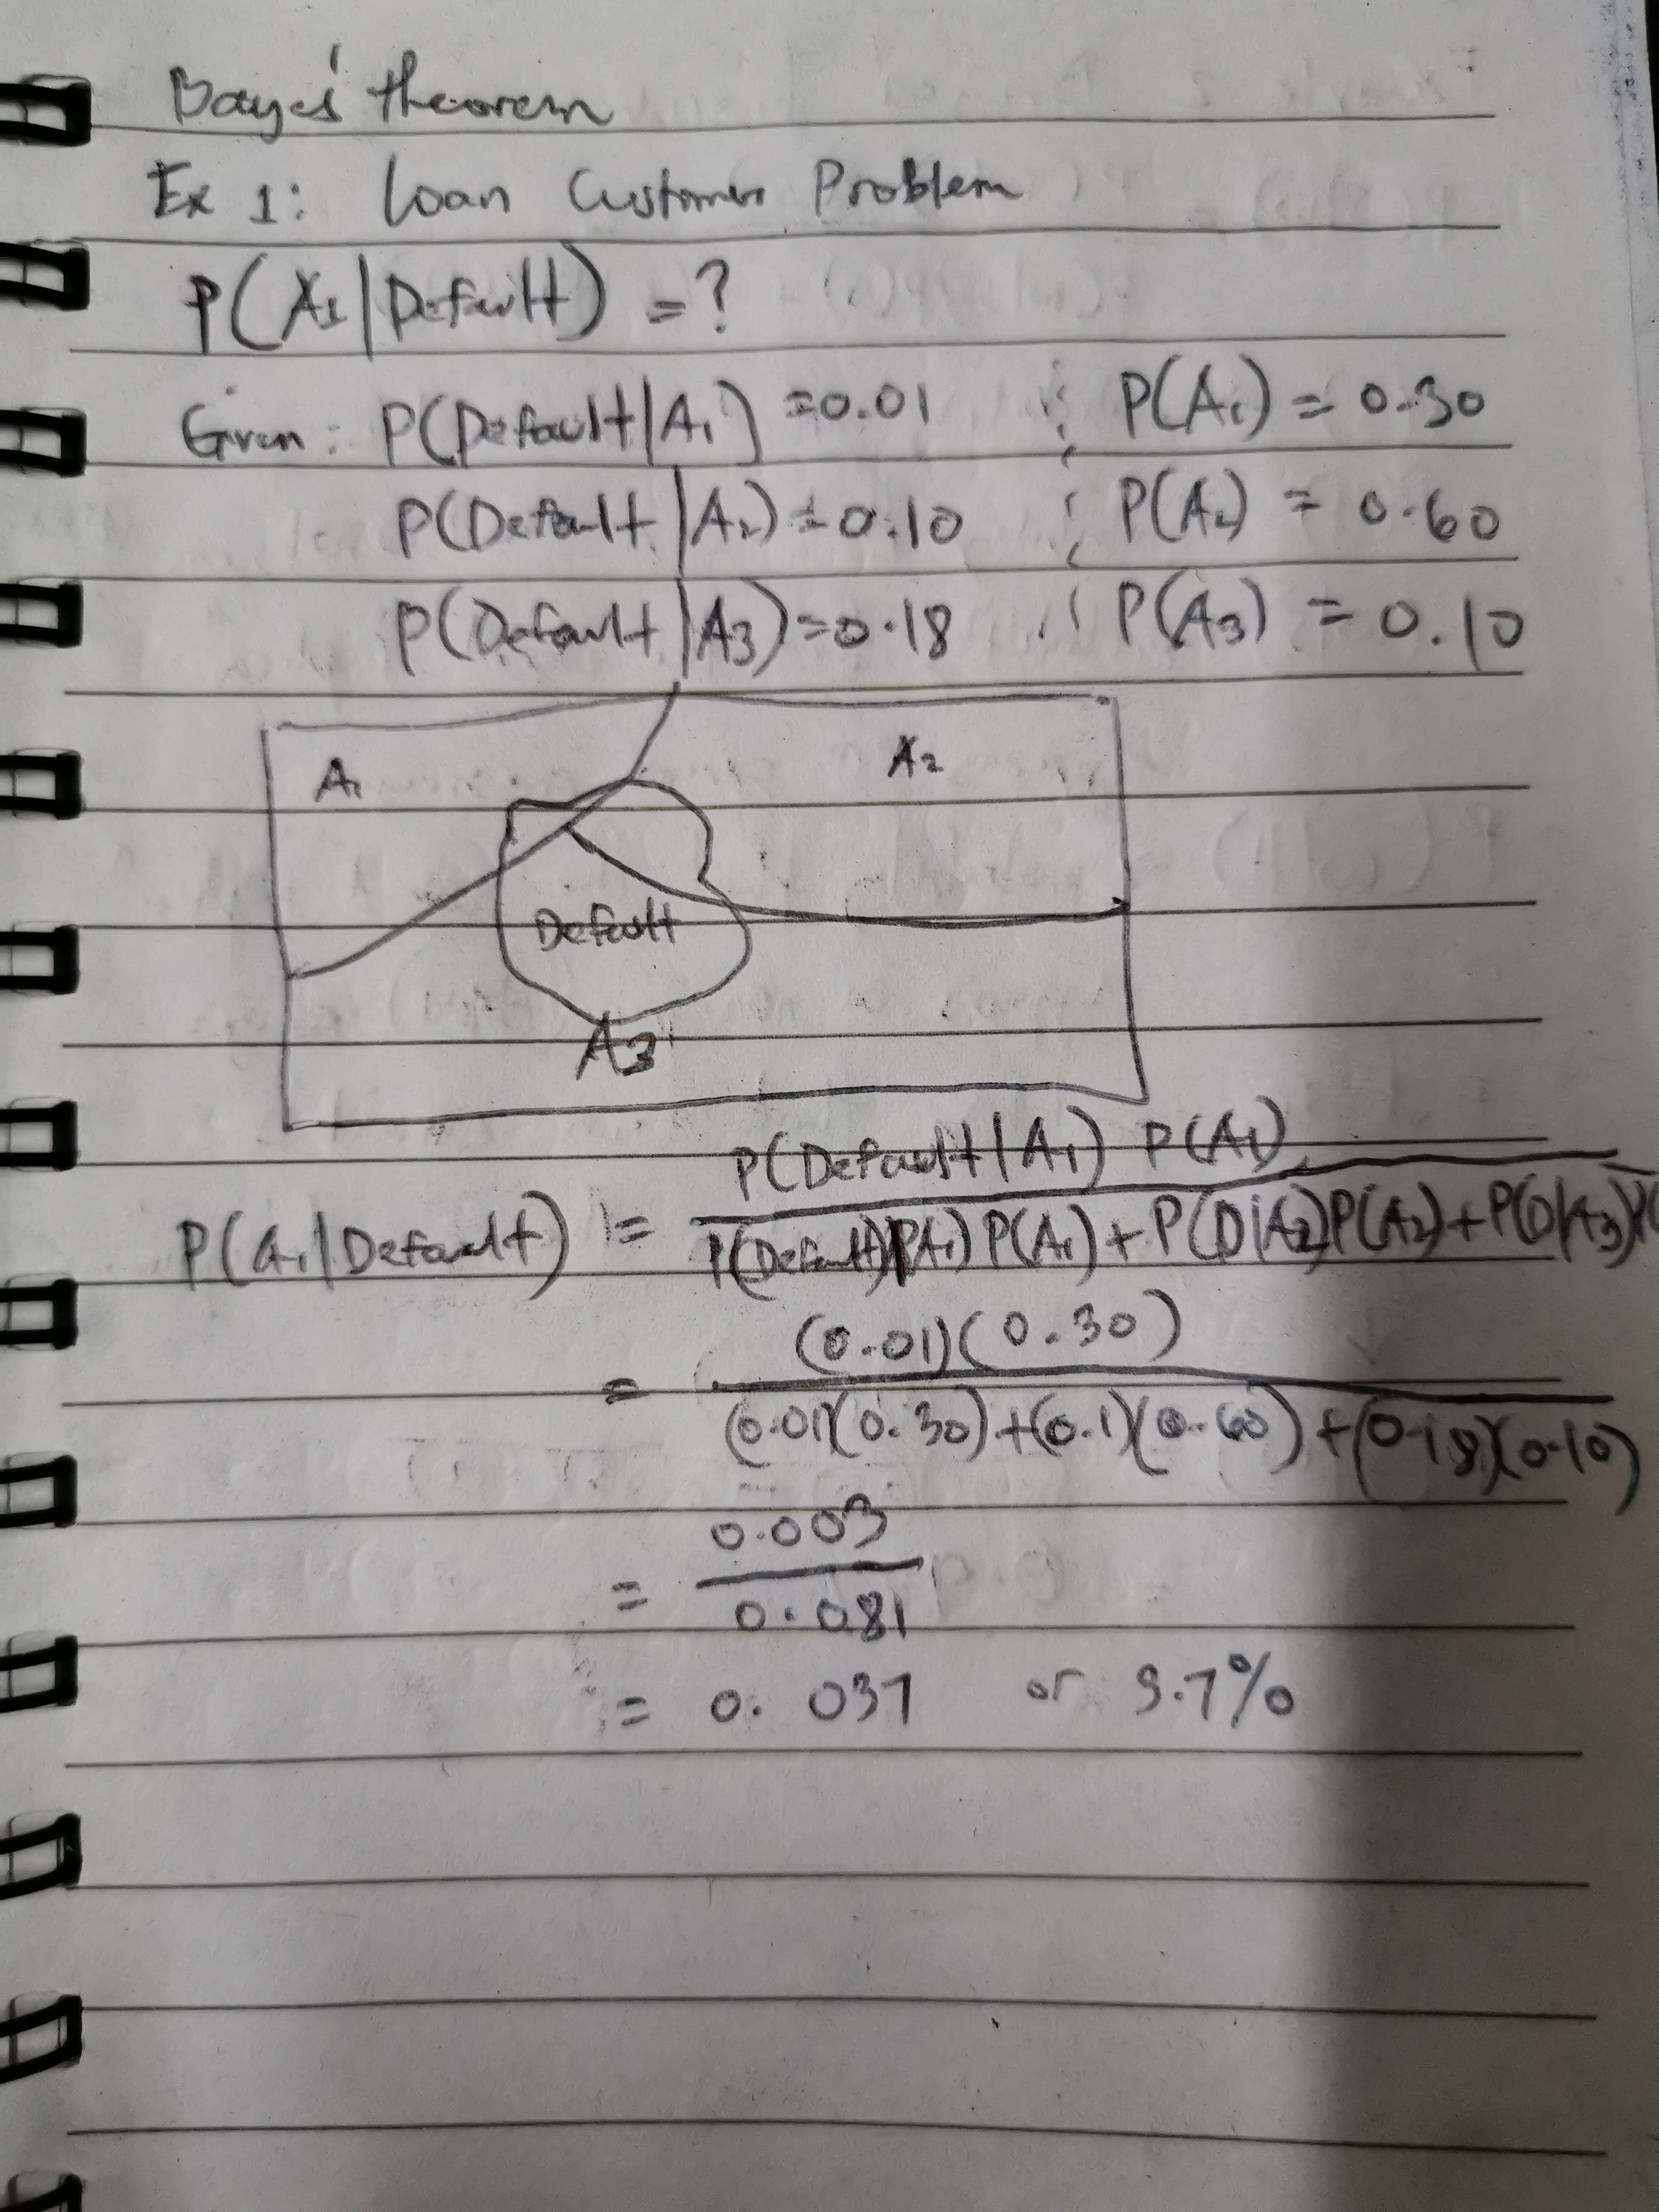 Bayes' theorem
Ex 1: Loan Customer Problem
P(A1|Default) = ?
Given: P(Default|A1) = 0.01 ; P(A1) = 0.30
P(Default|A2) = 0.10 ; P(A2) = 0.60
P(Default|A3) = 0.18 ; P(A3) = 0.10
A1 A2
Default
A3
P(Default|A1) P(A1)
P(A1|Default) = P(Default)|A1) P(A1) + P(D|A2)P(A2) + P(D|A3)
(0.01)(0.30)
= (0.01)(0.30) + (0.1)(0.60) + (0.18)(0.10)
0.003
= 0.081
= 0.037 or 3.7%